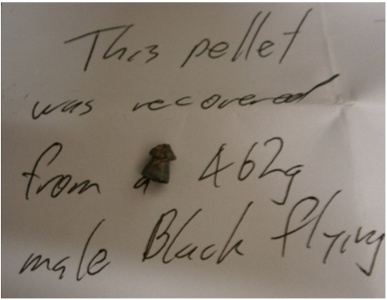 This pellet
was recovered
from a 462g
male Black flying